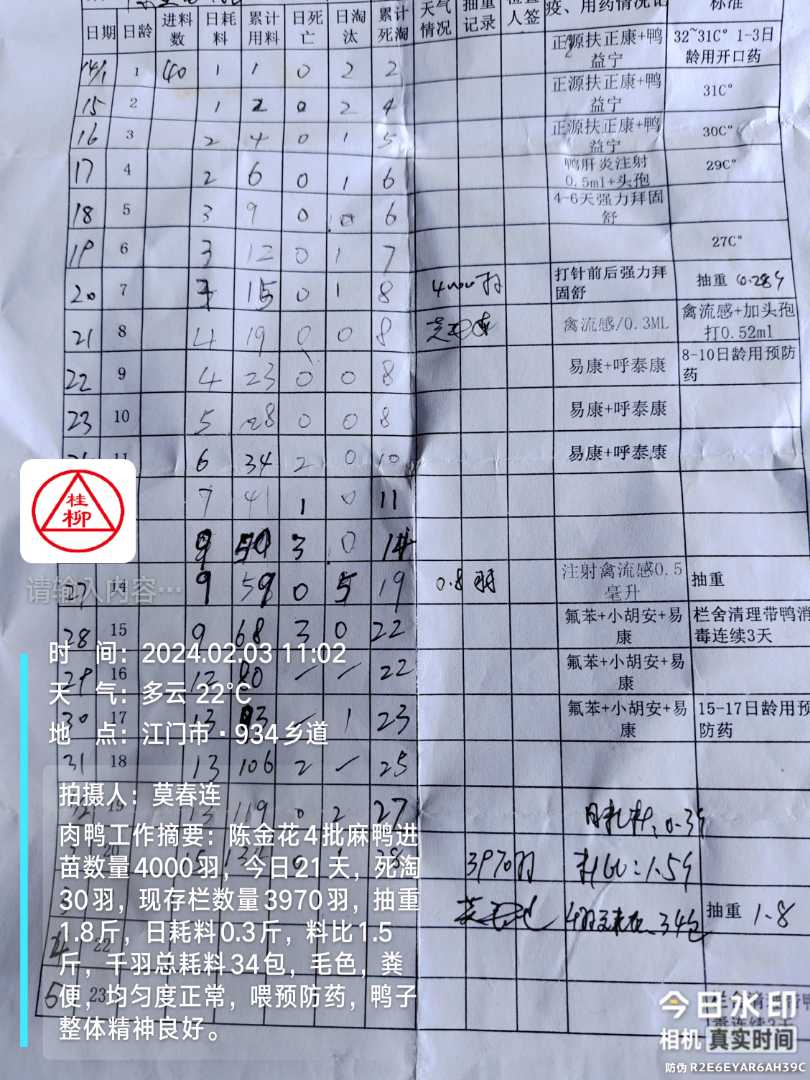 日期 日龄 进料数 日耗料 累计用料 日死亡 日淘汰 累计死淘 天气情况 抽重记录 疫、用药情况记 标准
14/1 1 40 1 1 0 2 2 正源扶正康+鸭益宁 32~31C° 1-3日龄用开口药
15 2 1 2 0 2 4 正源扶正康+鸭益宁 31C°
16 3 2 4 0 1 5 正源扶正康+鸭益宁 30C°
17 4 2 6 0 1 6 鸭肝炎注射0.5ml+头孢 29C°
18 5 3 9 0 0 6 4-6天强力拜固舒
19 6 3 12 0 1 7 27C°
20 7 3 15 0 1 8 4000羽 打针前后强力拜固舒 抽重 0.28斤
21 8 4 19 0 0 8 禽流感/0.3ML 禽流感+加头孢打0.52ml
22 9 4 23 0 0 8 易康+呼泰康 8-10日龄用预防药
23 10 5 28 0 0 8 易康+呼泰康
11 6 34 2 0 10 易康+呼泰康
7 41 1 0 11
9 50 3 0 14
27 14 9 59 0 5 19 0.8 羽 注射禽流感0.5毫升 抽重
28 15 9 68 3 0 22 氟苯+小胡安+易康 栏舍清理带鸭消毒连续3天
29 16 12 80 — — 22 氟苯+小胡安+易康
30 17 13 93 — 1 23 氟苯+小胡安+易康 15-17日龄用预防药
31 18 13 106 2 — 25
19 13 119 0 2 27 日耗料:0.3斤
15 28 3970羽 料比:1.5斤
34包 抽重 1.8
22
5 23
桂柳
请输入内容…
时 间：2024.02.03 11:02
天 气：多云 22℃
地 点：江门市·934乡道
拍摄人：莫春连
肉鸭工作摘要：陈金花4批麻鸭进
苗数量4000羽，今日21天，死淘
30羽，现存栏数量3970羽，抽重
1.8斤，日耗料0.3斤，料比1.5
斤，千羽总耗料34包，毛色，粪
便，均匀度正常，喂预防药，鸭子
整体精神良好。
今日水印
相机 真实时间
防伪 R2E6EYAR6AH39C